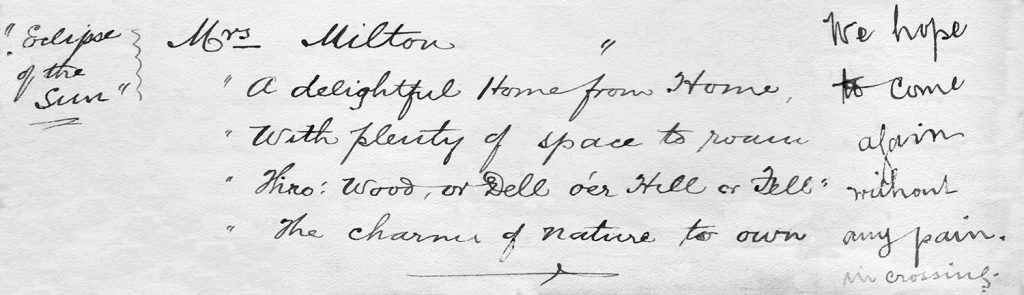 "Eclipse
of the
Sun"
Mrs Milton "
" A delightful Home from Home,
" With plenty of space to roam
" Thro: Wood, or Dell o'er Hill or Fell"
" The charms of nature to own
We hope
to come
again
without
any pain.
in crossing.